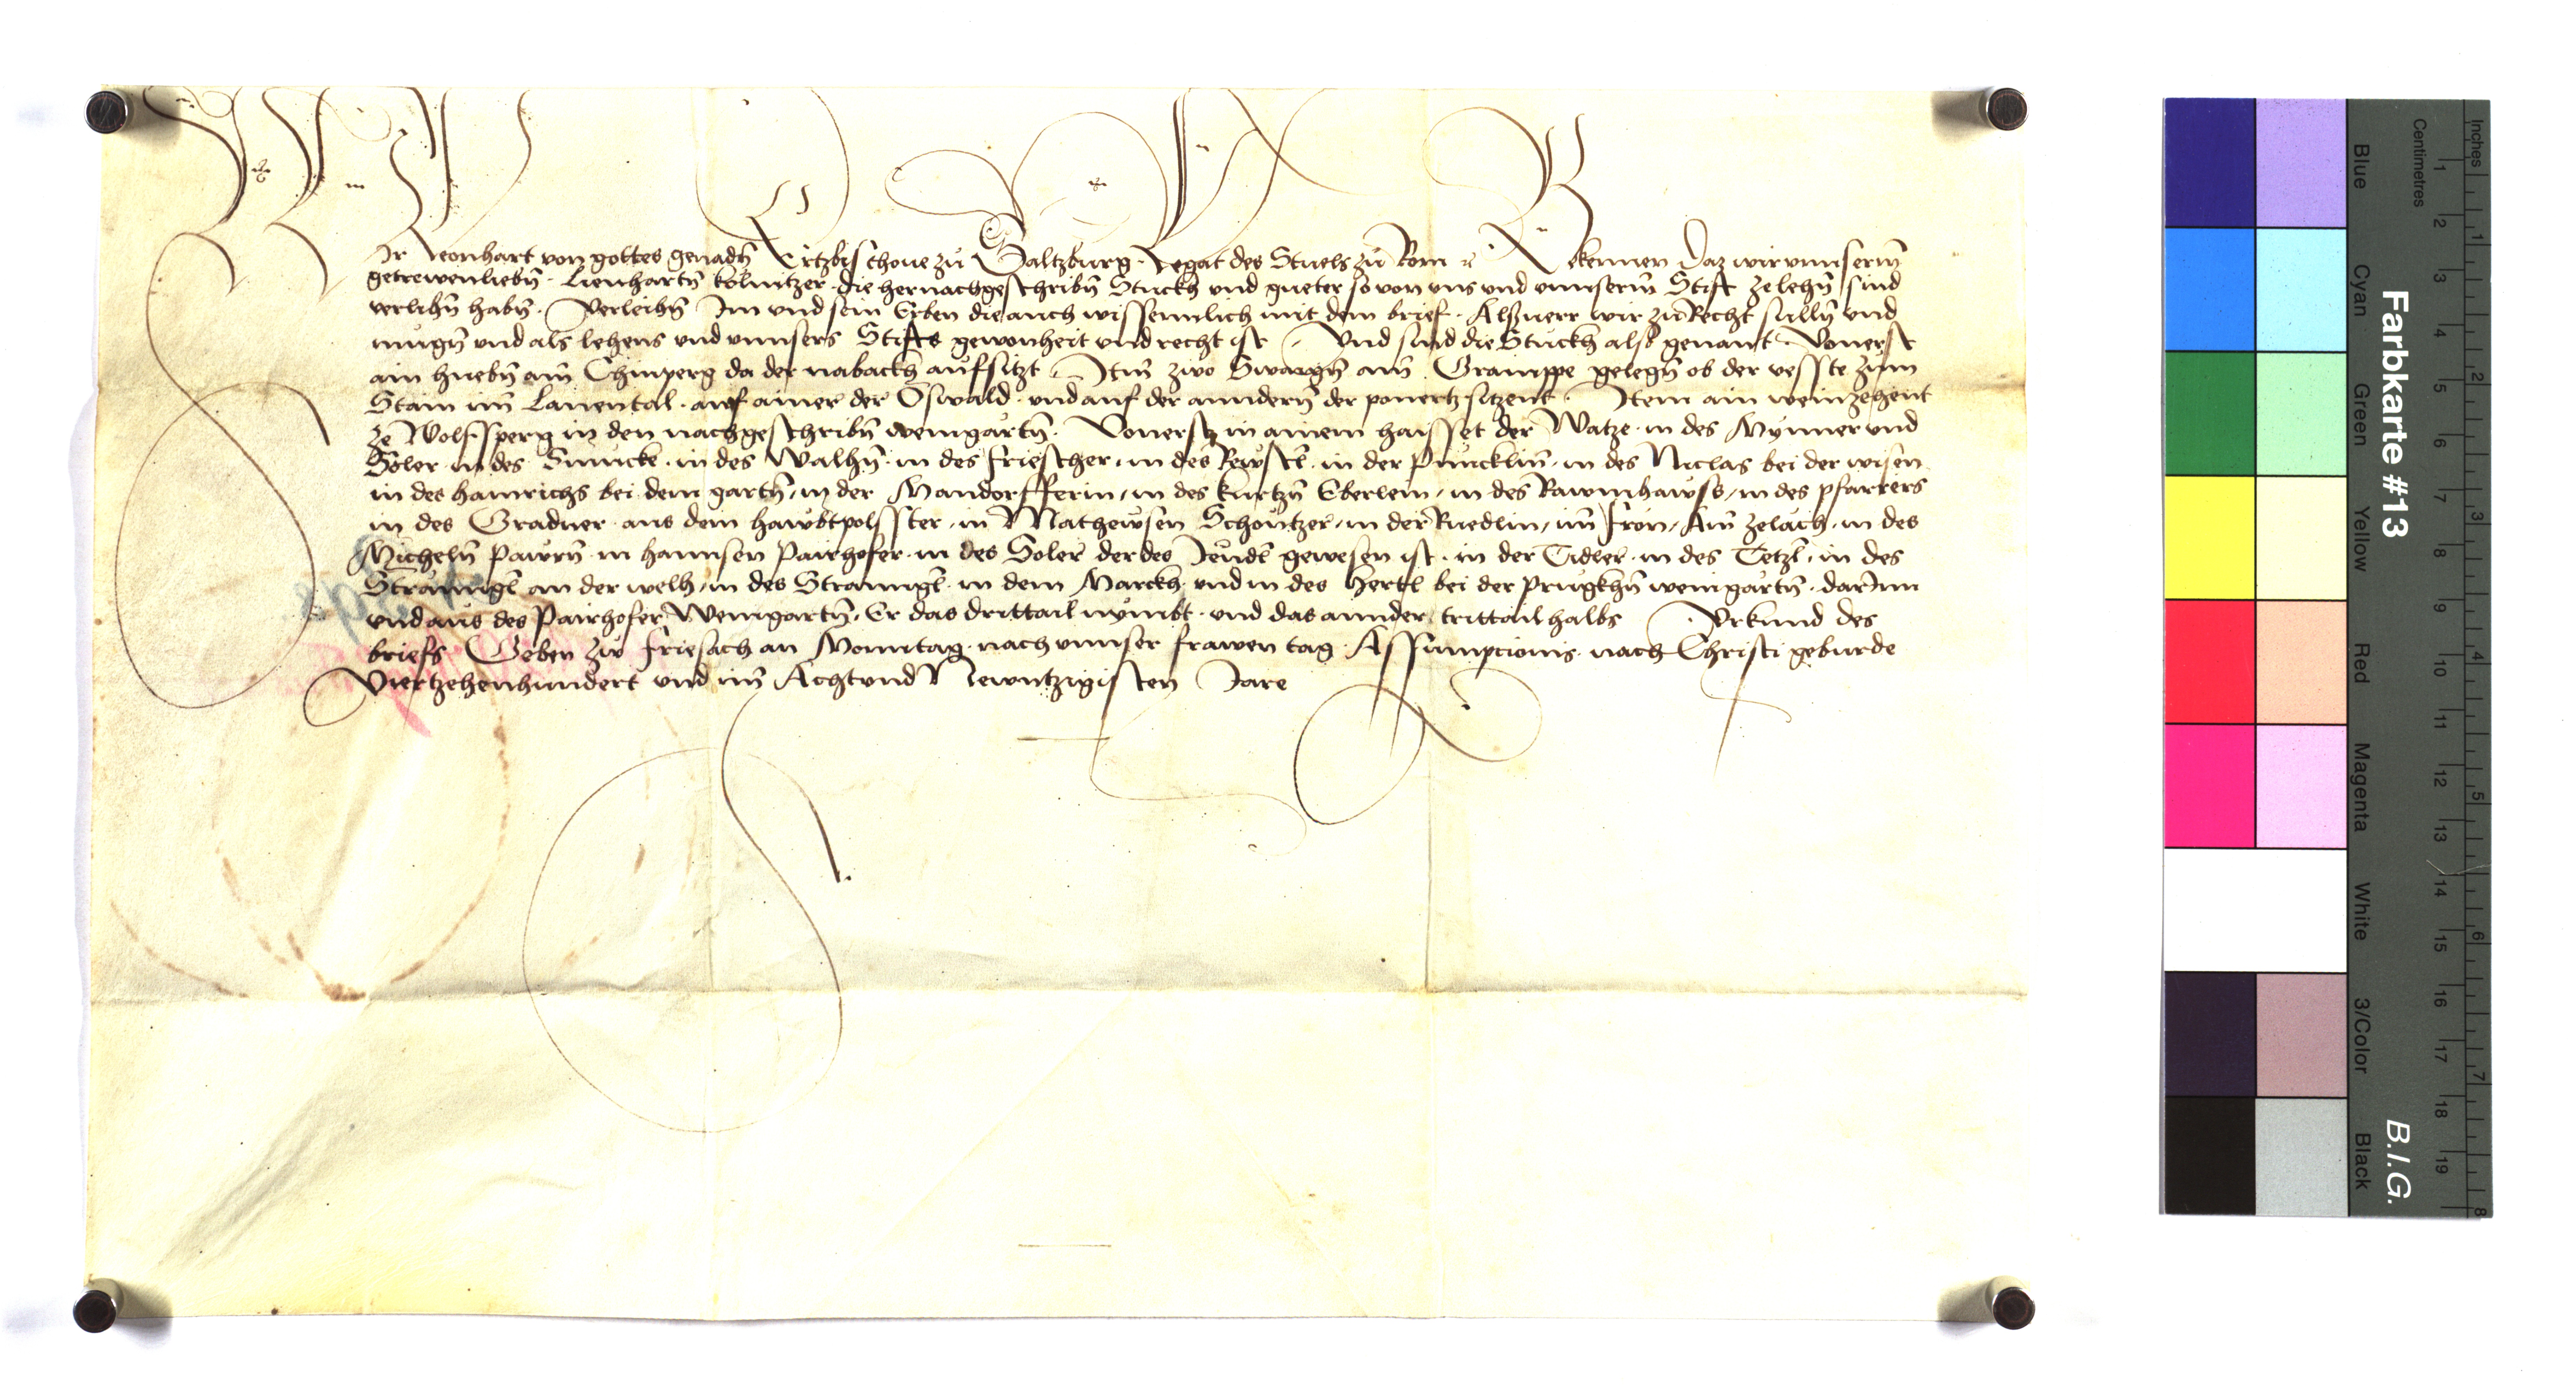 Wir Leonhart von gottes genadn̄ Ertzbischoue zu Saltzburg · Legat des Stuels zu Rom ꝛc Bekennen Daz wir vnnserm̄
getrewen liebn̄ · Lienhartn̄ kolnitzer · die hernachgeschribn̄ Stuckh vnd gueter so von vns vnd vnnserm̄ Stift ze lehn̄ sind
verlihn̄ habn̄ · Verleihn̄ Im vnd sein Erben die auch wissenntlich mit dem brief · Alßuerr wir zu Recht sulln̄ vnd
mugn̄ vnd als lehens vnd vnnsers Stifts gewonheit vnd recht ist · Vnd sind die Stuckh also genant · Vonerst
ain huebn̄ am̄ Chinperg da der nabackh aufsitzt · Itm̄ zwo Swaign̄ am̄ Gramppe gelegn̄ ob der vesste zum
Stain im̄ Lauental · auf ainer der Oswald · vnd auf der anndern̄ der ponertz sitzent · Item ain weinzehent
ze Wolfsperg in den nachgeschribn̄ weingartn̄ · Vonerst in ainem haisset der Watze · in des Mynner vnd
Soler · in des Smucke · in des Walhn̄ · in des friescher · in des Rewstl · in der Pnucklin̄ · in des Niclas bei der wisen
in des hainrichs bei dem gartn̄ / in der Mandorfferin / in des kurtzn̄ Eberlein / in des Rawmhawss / in des pfarrers
in des Gradner · aus dem hawbtpolsster / in Mathewsen Schontzer / in der Ruedlin / im̄ fron / Am̄ Zelach · in des
Micheln̄ Pawrn̄ · in hannsen Pairhofer · in des Soler der des Jeudl gewesen ist · in der Tidler · in des Tetzl · in des
Straungl an der welh / in des Straungl · in dem Marckh vnd in des hertl bei der Prugkhn̄ weingartn̄ · darInn
vnd aus des Pairhofer Weingartn̄ · Er das drittail nymbt · vnd das annder trittail halbs · Vrkund des
briefs Geben zw friesach an Monntag · nach vnnser frawen tag · Assumpcionis · nach Christi geburde
Viertzehenhundert vnd im̄ Achtvnd Newntzigisten Jare
Farbkarte #13
B.I.G.
Inches
Centimetres
Blue
Cyan
Green
Yellow
Red
Magenta
White
3/Color
Black
1 2 3 4 5 6 7 8 9 10 11 12 13 14 15 16 17 18 19
1 2 3 4 5 6 7 8